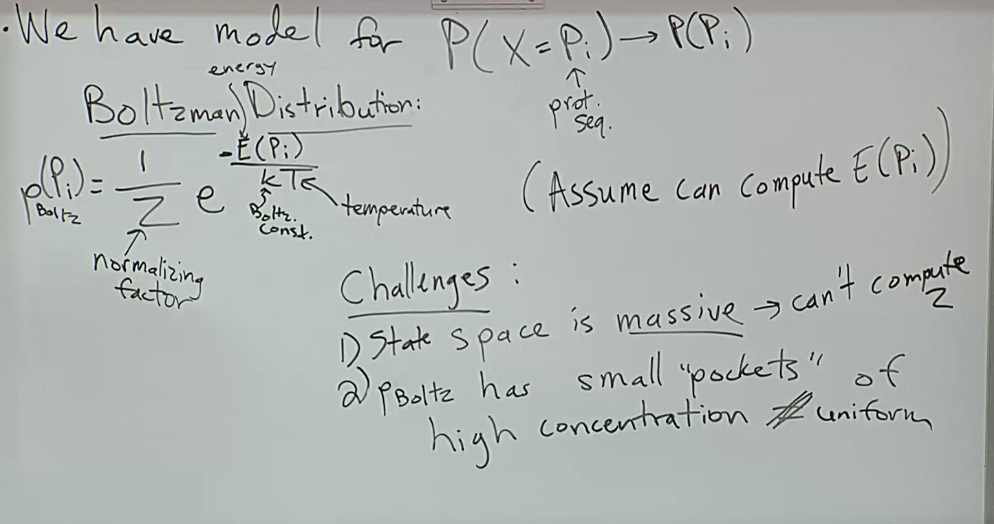 ·We have model for P(X=Pᵢ)→P(Pᵢ)
↑
prot.
seq.
energy
Boltzman Distribution:
p(Pᵢ)Boltz = 1/Z e^(-E(Pᵢ)/kT)
Boltz.
const.
temperature
normalizing
factor
(Assume can compute E(Pᵢ))
Challenges:
1) State space is massive → can't compute
Z
2) PBoltz has small "pockets" of
high concentration ≠ uniform